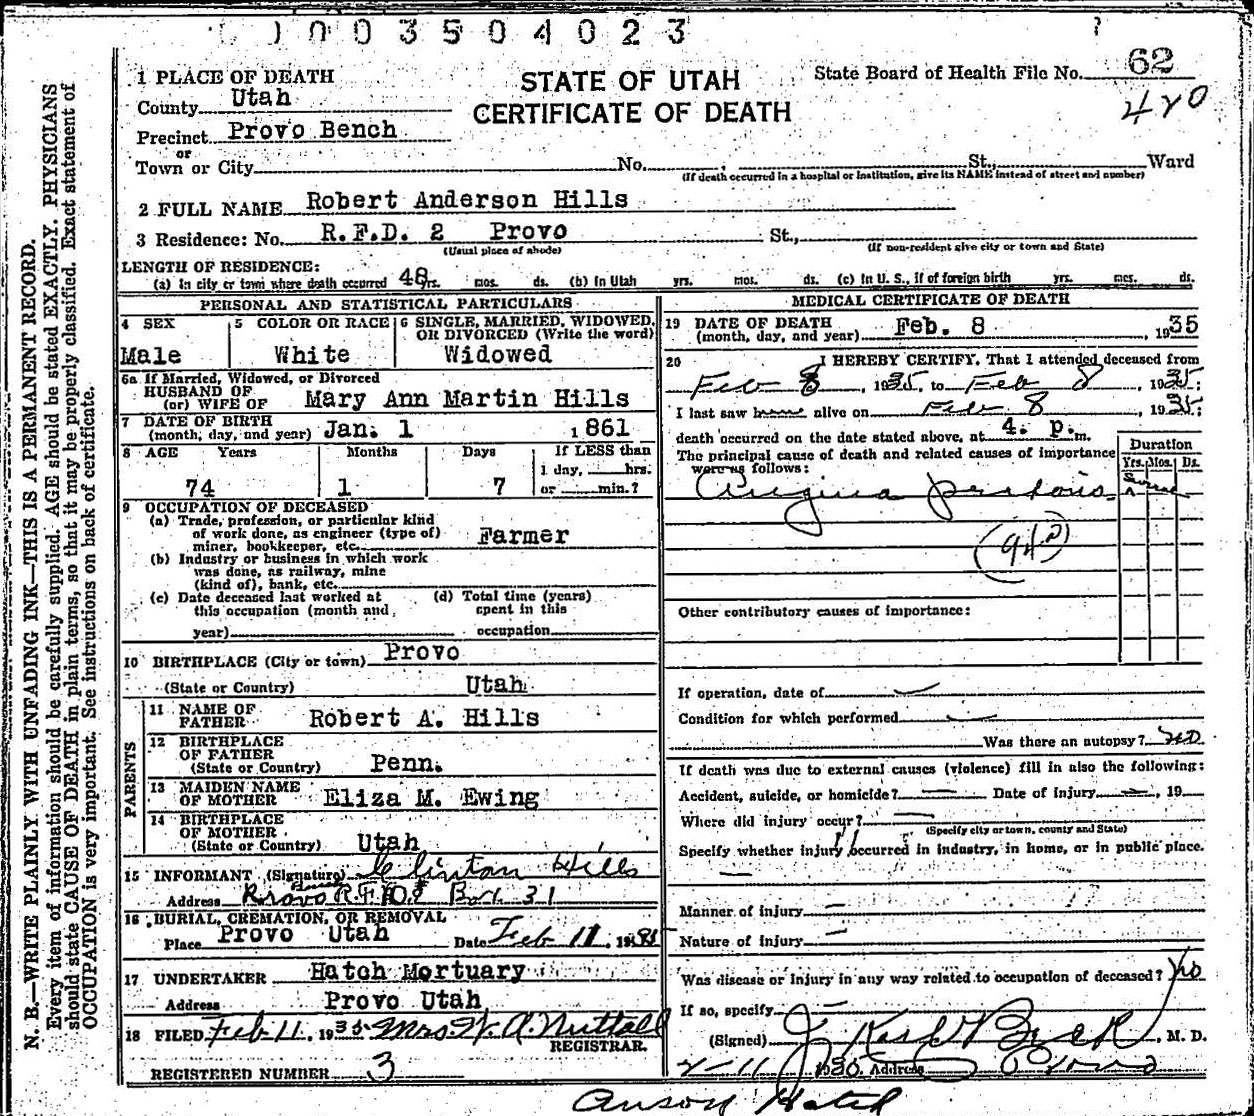 1003504023
STATE OF UTAH
CERTIFICATE OF DEATH
State Board of Health File No. 62
420
1 PLACE OF DEATH
County Utah
Precinct Provo Bench
or
Town or City No. , St., Ward
(If death occurred in a hospital or Institution, give its NAME instead of street and number)
2 FULL NAME Robert Anderson Hills
3 Residence: No. R.F.D. 2 Provo St.,
(Usual place of abode) (If non-resident give city or town and State)
LENGTH OF RESIDENCE:
(a) in city or town where death occurred 48 yrs. mos. ds. (b) In Utah yrs. mos. ds. (c) In U. S., if of foreign birth yrs. mos. ds.
PERSONAL AND STATISTICAL PARTICULARS
4 SEX
Male
5 COLOR OR RACE
White
6 SINGLE, MARRIED, WIDOWED,
OR DIVORCED (Write the word)
Widowed
6a If Married, Widowed, or Divorced
HUSBAND OF
(or) WIFE OF Mary Ann Martin Hills
7 DATE OF BIRTH
(month, day, and year) Jan. 1 1861
8 AGE Years Months Days If LESS than
1 day, hrs.
74 1 7 or min.?
9 OCCUPATION OF DECEASED
(a) Trade, profession, or particular kind
of work done, as engineer (type of)
miner, bookkeeper, etc. Farmer
(b) Industry or business in which work
was done, as railway, mine
(kind of), bank, etc.
(c) Date deceased last worked at
this occupation (month and
year)
(d) Total time (years)
spent in this
occupation
10 BIRTHPLACE (City or town) Provo
(State or Country) Utah
PARENTS
11 NAME OF
FATHER Robert A. Hills
12 BIRTHPLACE
OF FATHER
(State or Country) Penn.
13 MAIDEN NAME
OF MOTHER Eliza M. Ewing
14 BIRTHPLACE
OF MOTHER
(State or Country) Utah
15 INFORMANT (Signature) Clinton Hills
Address Provo R.F.D. Box 31
16 BURIAL, CREMATION, OR REMOVAL
Place Provo Utah Date Feb 11, 1935
17 UNDERTAKER Hatch Mortuary
Address Provo Utah
18 FILED Feb 11, 1935 Mrs W. A. Nuttall
REGISTRAR.
REGISTERED NUMBER 3
MEDICAL CERTIFICATE OF DEATH
19 DATE OF DEATH
(month, day, and year) Feb. 8 1935
20 I HEREBY CERTIFY, That I attended deceased from
Feb 8, 1935, to Feb 8, 1935;
I last saw alive on Feb 8, 1935;
death occurred on the date stated above, at 4. p. m.
The principal cause of death and related causes of importance
were as follows:
Duration
Yrs. Mos. Ds.
Angina pectoris
Other contributory causes of importance:
If operation, date of
Condition for which performed
Was there an autopsy? no
If death was due to external causes (violence) fill in also the following:
Accident, suicide, or homicide? — Date of injury —, 19
Where did injury occur? —
(Specify city or town, county and State)
Specify whether injury occurred in industry, in home, or in public place.
—
Manner of injury —
Nature of injury —
Was disease or injury in any way related to occupation of deceased? No
If so, specify —
(Signed) J Karl Beck, M. D.
2-11 1935 Address Provo
Anson Hatch
N. B.—WRITE PLAINLY WITH UNFADING INK—THIS IS A PERMANENT RECORD.
Every item of information should be carefully supplied. AGE should be stated EXACTLY. PHYSICIANS
should state CAUSE OF DEATH in plain terms, so that it may be properly classified. Exact statement of
OCCUPATION is very important. See instructions on back of certificate.